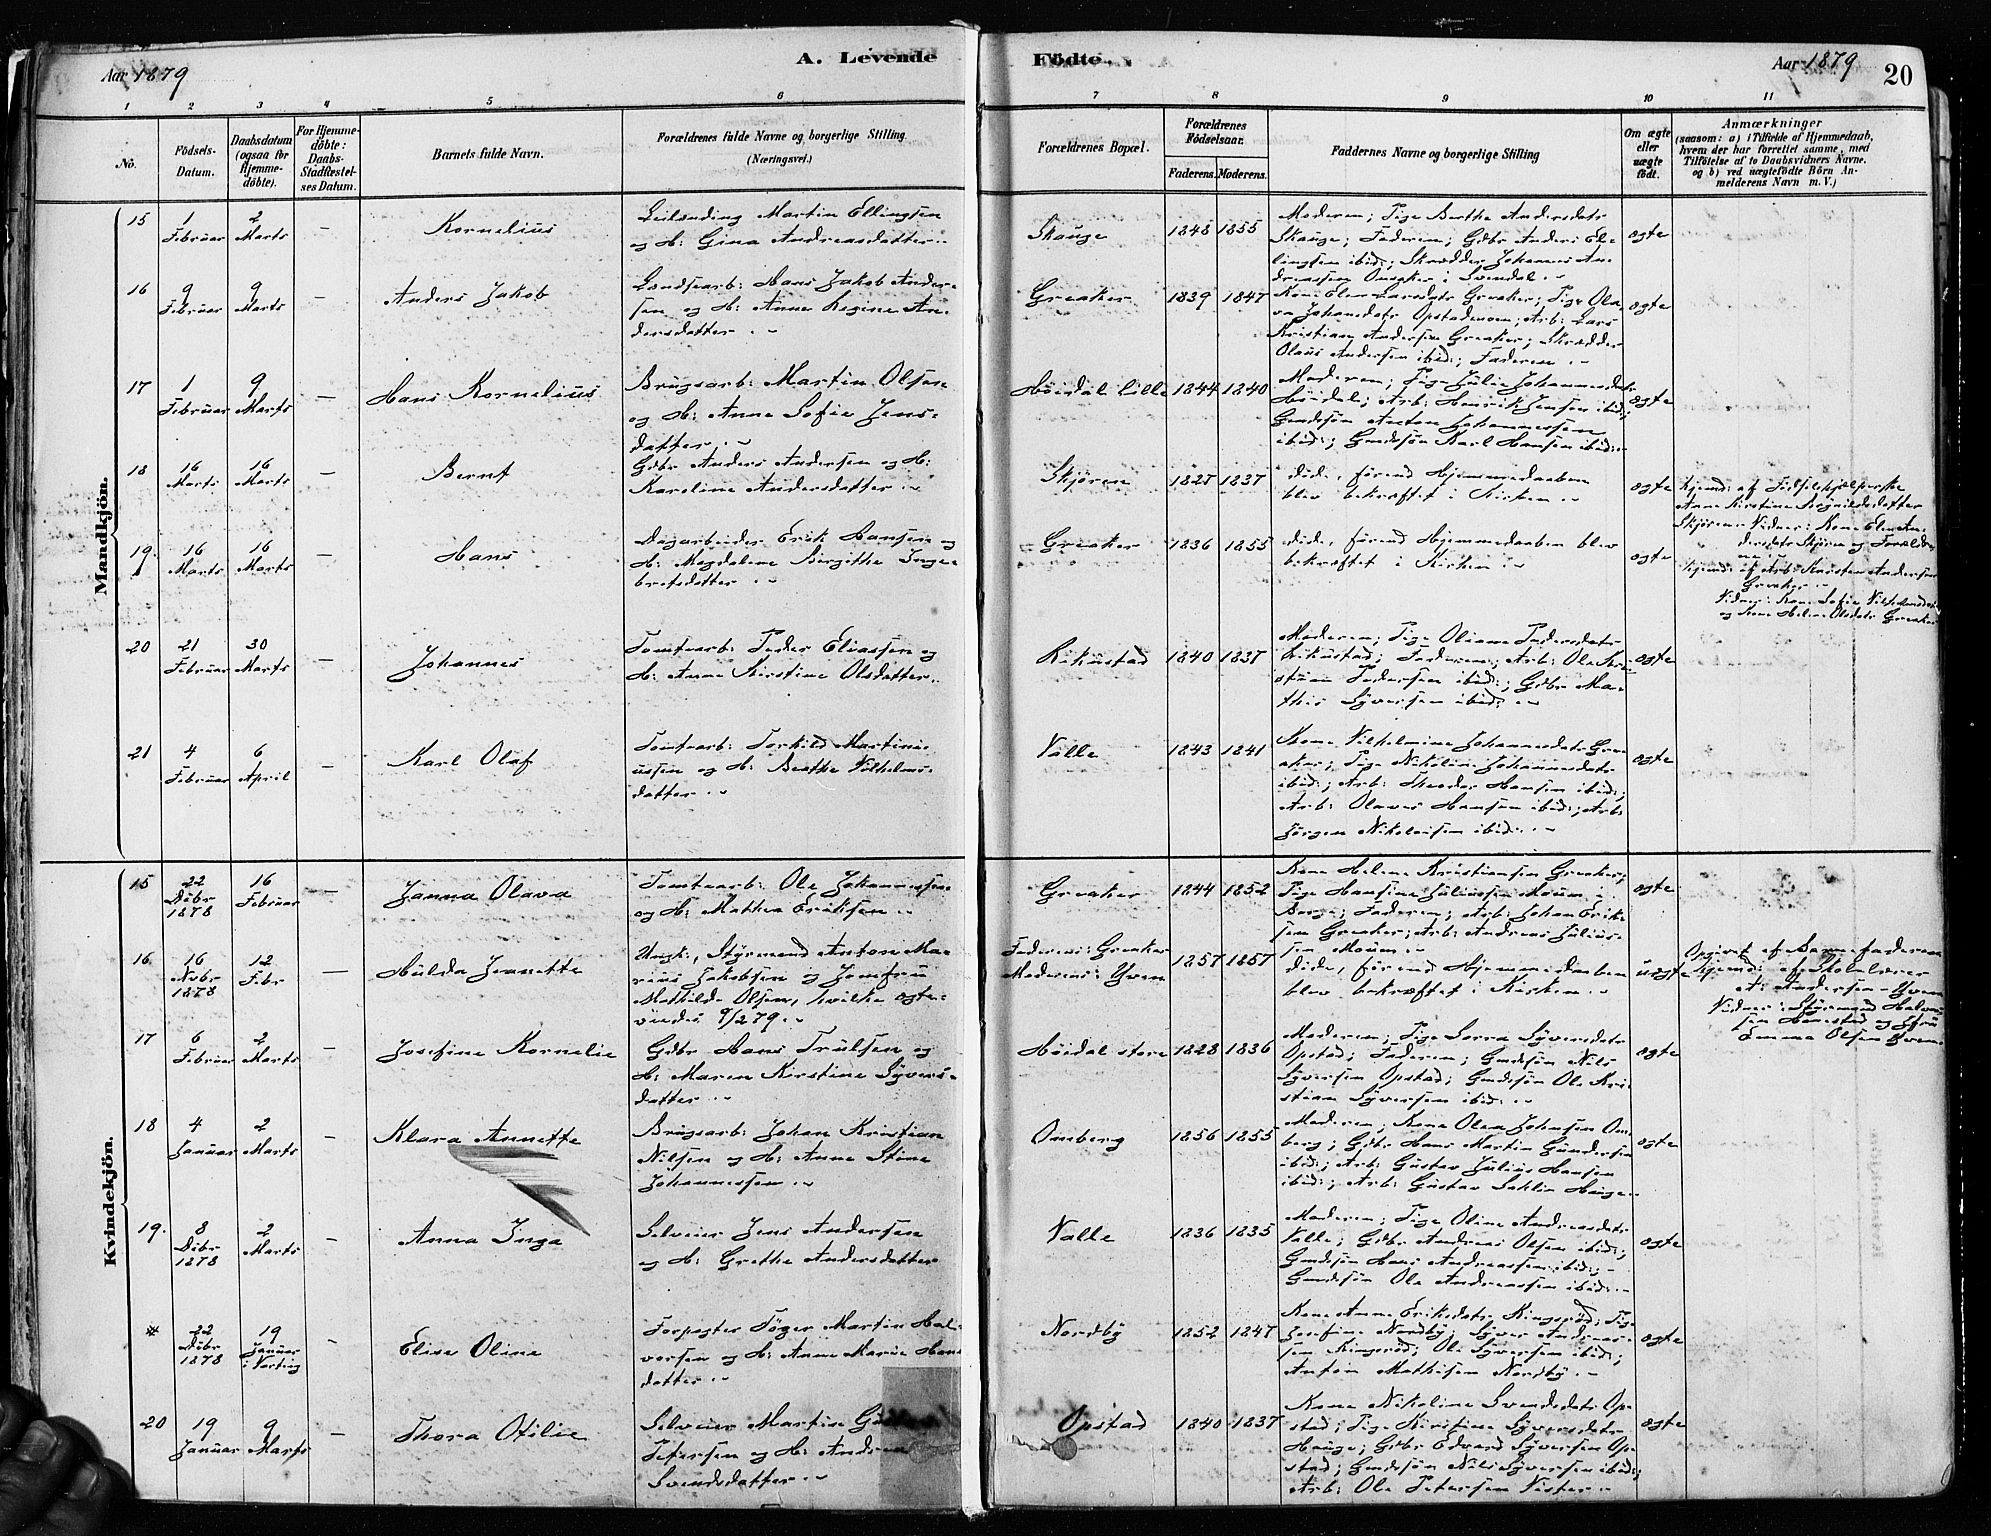 Aar 1879
A. Levende
Födte.
Aar 1879
20
1 2 3 4 5 6 7 8 9 10 11
No.
Födsels-
Datum.
Daabsdatum
(ogsaa för
Hjemme-
döbte).
For Hjemme-
döbte:
Daabs-
Stadfæstel-
ses Datum.
Barnets fulde Navn.
Forældrenes fulde Navne og borgerlige Stilling
(Næringsvei.)
Forældrenes Bopæl.
Forældrenes
Födselsaar.
Faderens. Moderens.
Faddernes Navne og borgerlige Stilling
Om ægte
eller
uægte
födt.
Anmærkninger
(saasom: a) i Tilfælde af Hjemmedaab,
hvem der har forrettet samme, med
Tilföielse af to Daabsvidners Navne.
og b) ved uægtefödte Börn An-
melderens Navn m. V.)
Mandkjön.
15
1
Februar
2
Marts
Kornelius
Leilænding Martin Ellingsen
og H: Gina Andreasdatter
Skauge
1848 1855
Moderen; Pige Berthe Andersdatr
Skauge; Faderen; Gdbr Anders El-
lingsen ibid:; Skrædder Johannes An-
dreassen
ægte
16
9
Februar
9
Marts
Anders Jakob
Landsarb: Hans Jakob Ander-
sen og H: Anne Regine An-
dersdatter
Greaker
1839 1847
Kone Elen Larsdatr Greaker; Pige Ola-
va Johansdatr Opstadmoen; Arb: Lars
Kristian Andersen Greaker; Skrædder
Olaus Andersen ibid:; Faderen
ægte
17
1
Februar
9
Marts
Hans Kornelius
Brugsarb: Martin Olsen
og H: Anne Sofie Jens-
datter
Höidal lille
1844 1840
Moderen; Pige Julie Johannesdatr
Höidal; Arb: Henrik Jensen ibid:;
Gaardsön Anton Johannessen
ibid:; Gaardsön Karl Hansen ibid:
ægte
18
16
Marts
16
Marts
Bernt
Gdbr Anders Andersen og H:
Karoline Andersdatter
Skjören
1837
död, förend Hjemmedaaben
blev bekræftet i Kirken
ægte
Hjemd: af Födselshjælperske
Anne Kirstine
Skjören Vidner: Kone Elen An-
dersdatr Skjören og Foræld-
rene
19.
16
Marts
16
Marts
Hans
Dagarbeider Erik Hansen og
H: Magdalene Birgitthe Inge-
bretsdatter
Greaker
1836 1855
död, förend Hjemmedaaben blev
bekræftet i Kirken
ægte
Hjemd: af Arb: Karsten Andersen
Greaker
Vidner: Kone Sofie
og Kone Helene Olsdatr Greaker
20
21
Februar
30
Marts
Johannes
Tomtearb: Peder Eliassen og
H: Anne Kirstine Olsdatter
Rikustad
1840 1837
Moderen; Pige Oliane Pedersdatr
Rikustad; Faderen; Arb: Ole Kri-
stian Pedersen ibid:; Gdbr Ma-
this Syversen ibid:
ægte
21
4
Februar
6
April
Karl Olaf
Tomtearb: Torkild Martini-
ussen og H: Berthe Vilhelms-
datter
Valle
1843 1841
Kone Vilhelmine Johannesdatr Gre-
aker; Pige Nikoline Johannesdatr
ibid:; Arb: Theodor Hansen ibid:;
Arb: Olaves Hansen ibid:; Arb:
Jörgen Nikolaisen ibid:
ægte
Kvindekjön.
15
22
Dcbr
1878
16
Februar
Janna Olava
Tomtearb: Ole Johannessen
og H: Mathea Eriksen
Greaker
1844 1852
Kone Helene Kristiansen Greaker;
Pige Hansine Juliussen Moum i
Borge; Faderen; Arb: Johan Erik-
sen Greaker; Arb: Andreas Julius-
sen Moum
ægte
16
16
Nvbr
1878
12
Febr
Hulda Jeanette
Ungk:, Styrmand Anton Ma-
rius Jakobsen og Jomfru
Mathilde Olsen, hvilke ægte-
viedes 9/2 79.
Faderens: Greaker
Moderens: Yven
1857 1857
död, förend Hjemmedaaben
blev bekræftet i Kirken
uægte
Opgivet af Barnefaderen
Hjemd: af Skolelærer
A. Andersen Yven
Vidner: Styrmand Halvor-
sen Hanestad og Jfru
Emma Olsen Yven
17
6
Februar
2
Marts
Josefine Kornelie
Gdbr Hans Trulsen og
H: Maren Kirstine Syvers-
datter
Höidal store
1828 1836
Moderen; Pige Syversdatr
Opstad; Faderen; Gaardsön Nils
Syversen Opstad; Gaardsön Ole Kri-
stian Syversen ibid:
ægte
18
4
Januar
2
Marts
Klara Annette
Brugsarb: Johan Kristian
Nilsen og H: Anne Stine
Johannessen
Omberg
1856 1855
Moderen; Kone Olea Johnsen Om-
berg; Gdbr Hans Martin Gundersen
ibid:; Arb: Gustav Julius Hansen
ibid:; Arb: Gustav Hauge
ægte
19.
8
Dcbr
1878
2
Marts
Anna Inga
Selveier Jens Andersen
og H: Grethe Andersdatter
Valle
1836 1835
Moderen; Pige Oline Andreasdatr
Valle; Gdbr Andreas Olsen ibid:;
Gaardsön Hans Andreassen ibid:;
Gaardsön Ole Andreassen ibid:
ægte
*
22
Dcbr
1878
19
Januar
i Varteig
Elise Oline
Forpagter Töger Martin Hal-
vorsen og H: Anne Marie Hans
datter
Nordby
1852 1847
Kone Anne Eriksdatr Kingeröd; Pige
Josefine Nordby; Syver Andreas-
sen Kingeröd; Ole Syversen ibid:;
Anton Mathisen Nordby
ægte
20
19
Januar
9
Marts
Thora Otilie
Selveier Martin
Petersen og H: Andrea
Svendsdatter
Opstad
1840 1837
Kone Nikoline Svendsdatr Op-
stad; Pige Kirstine Syversdatr
Hauge; Gdbr Edvard Syversen Op-
stad; Gaardsön Nils Syversen ibid:;
Arb: Ole Petersen Vister
ægte